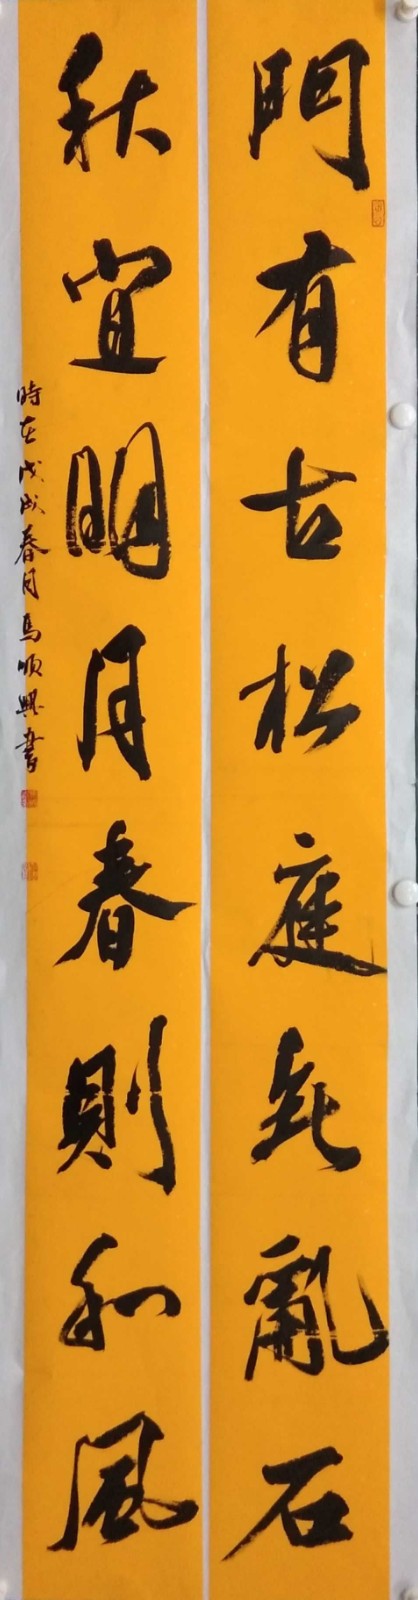 門有古松庭无亂石
秋宜明月春則和風
時在戊戌春月馬順興書